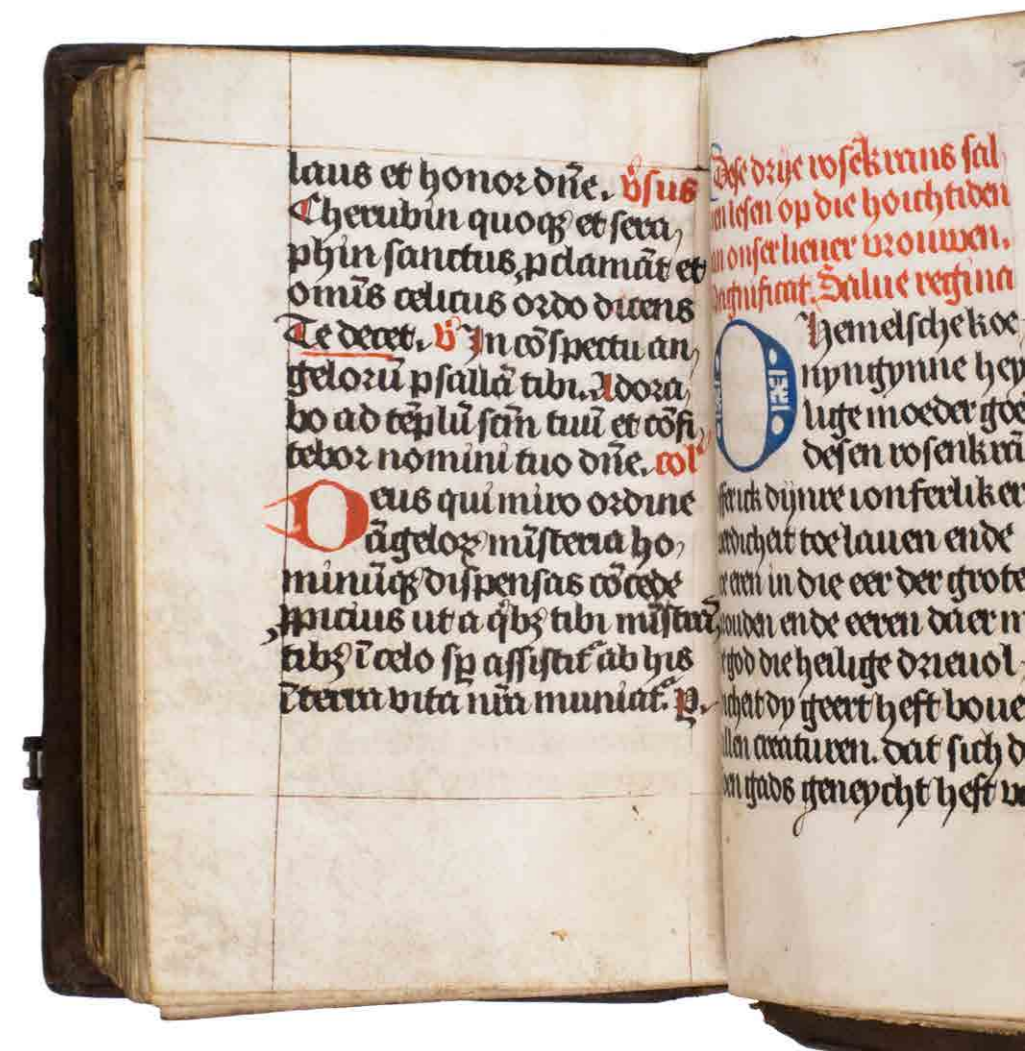 laus et honor dn̄e. v̄sus
Cherubin quoqꝫ et sera
phin sanctus ꝓclamāt et
omīs celicus ordo dicens
Te decet. v̄ In cōspectu an
gelorū psallā tibi. Adora
bo ad tēplū sc̄m tuū et cōfi
tebor nomini tuo dn̄e. col̄
Deus qui miro ordine
āgeloꝝ mīsteria ho
minūqꝫ dispensas cōcede
ꝓpicius ut a qͥbꝫ tibi mīstrā
tibꝫ ī celo sꝑ assistit᷑ ab his
ī terra vita nr̄a muniat᷑. p.
Dese drije rosēkrans sal
en lesen op die hoichtiden
an onser lieuer vrouwen.
Magnificat. Salue regina
O Hemelsche koe
nyngynne hey
lige moeder god
desen rosenkrā
offer ick dijnre ionferliker
werdicheit toe lauen ende
te eren in die eer der grote
ende eeren daer m
god die heilige drieuol
icheit dy geert heft boue
allen creaturen. dat sich d
gads geneycht heft